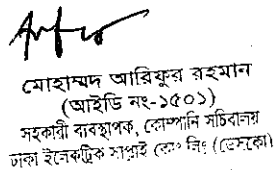 মোহাম্মদ আরিফুর রহমান
(আইডি নং-১৫০১)
সহকারী ব্যবস্থাপক, কোম্পানি সচিবালয়
ঢাকা ইলেকট্রিক সাপ্লাই কোং লিঃ (ডেসকো)